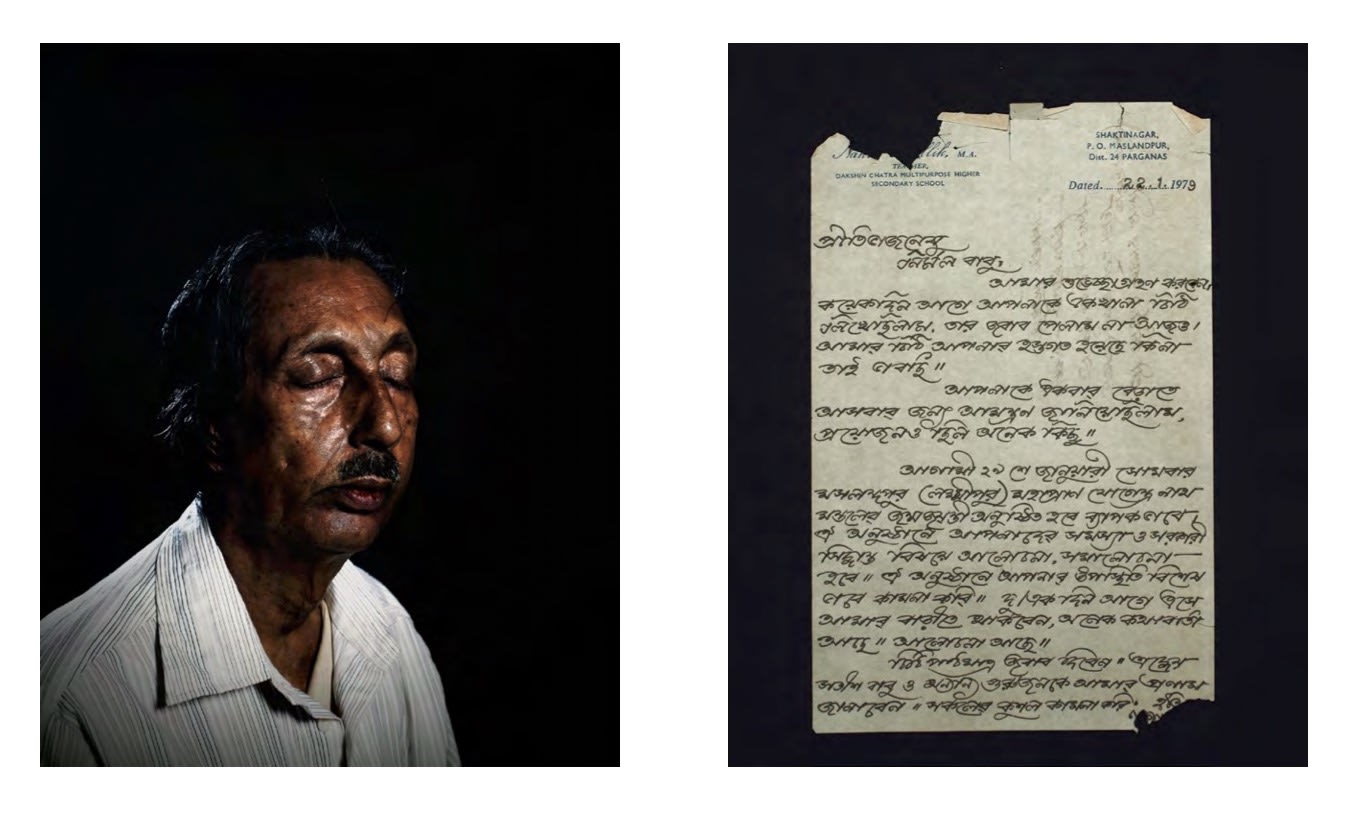 M.A.
DAKSHIN CHATRA MULTIPURPOSE HIGHER
SECONDARY SCHOOL
SHAKTINAGAR,
P. O. MASLANDPUR,
Dist. 24 PARGANAS
Dated. 22.1.1979
প্রীতিভাজনেষু
নির্মল বাবু,
আমার শুভেচ্ছা গ্রহণ করবেন।
কয়েকদিন আগে আপনাকে একখানা চিঠি
লিখেছিলাম, তার জবাব পেলাম না আজও।
আমার চিঠি আপনার হস্তগত হয়েছে কিনা
তাই ভাবছি॥
আপনাকে একবার বেড়াতে
আসবার জন্য আমন্ত্রণ জানিয়েছিলাম,
প্রয়োজনও ছিল অনেক কিছু॥
আগামী ২৯ শে জানুয়ারী সোমবার
মসলন্দপুর (লক্ষ্মীপুর) মহাপ্রাণ যোগেন্দ্র নাথ
মণ্ডলের জন্মজয়ন্তী অনুষ্ঠিত হবে ব্যাপকভাবে
ঐ অনুষ্ঠানে আপনাদের সমস্যা ও সরকারী
সিদ্ধান্ত বিষয়ে আলোচনা, সমালোচনা
হবে॥ ঐ অনুষ্ঠানে আপনার উপস্থিতি বিশেষ
ভাবে কামনা করি॥ দু/একদিন আগে এসে
আমার বাড়ীতে থাকবেন, অনেক কথাবার্তা
আছে॥ আলোচনা আছে॥
চিঠি পাঠমাত্র জবাব দিবেন॥ শ্রদ্ধেয়
সতীশ বাবু ও অন্যান্য গুরুজনকে আমার প্রণাম
জানাবেন॥ সকলের কুশল কামনা করি। ইতি